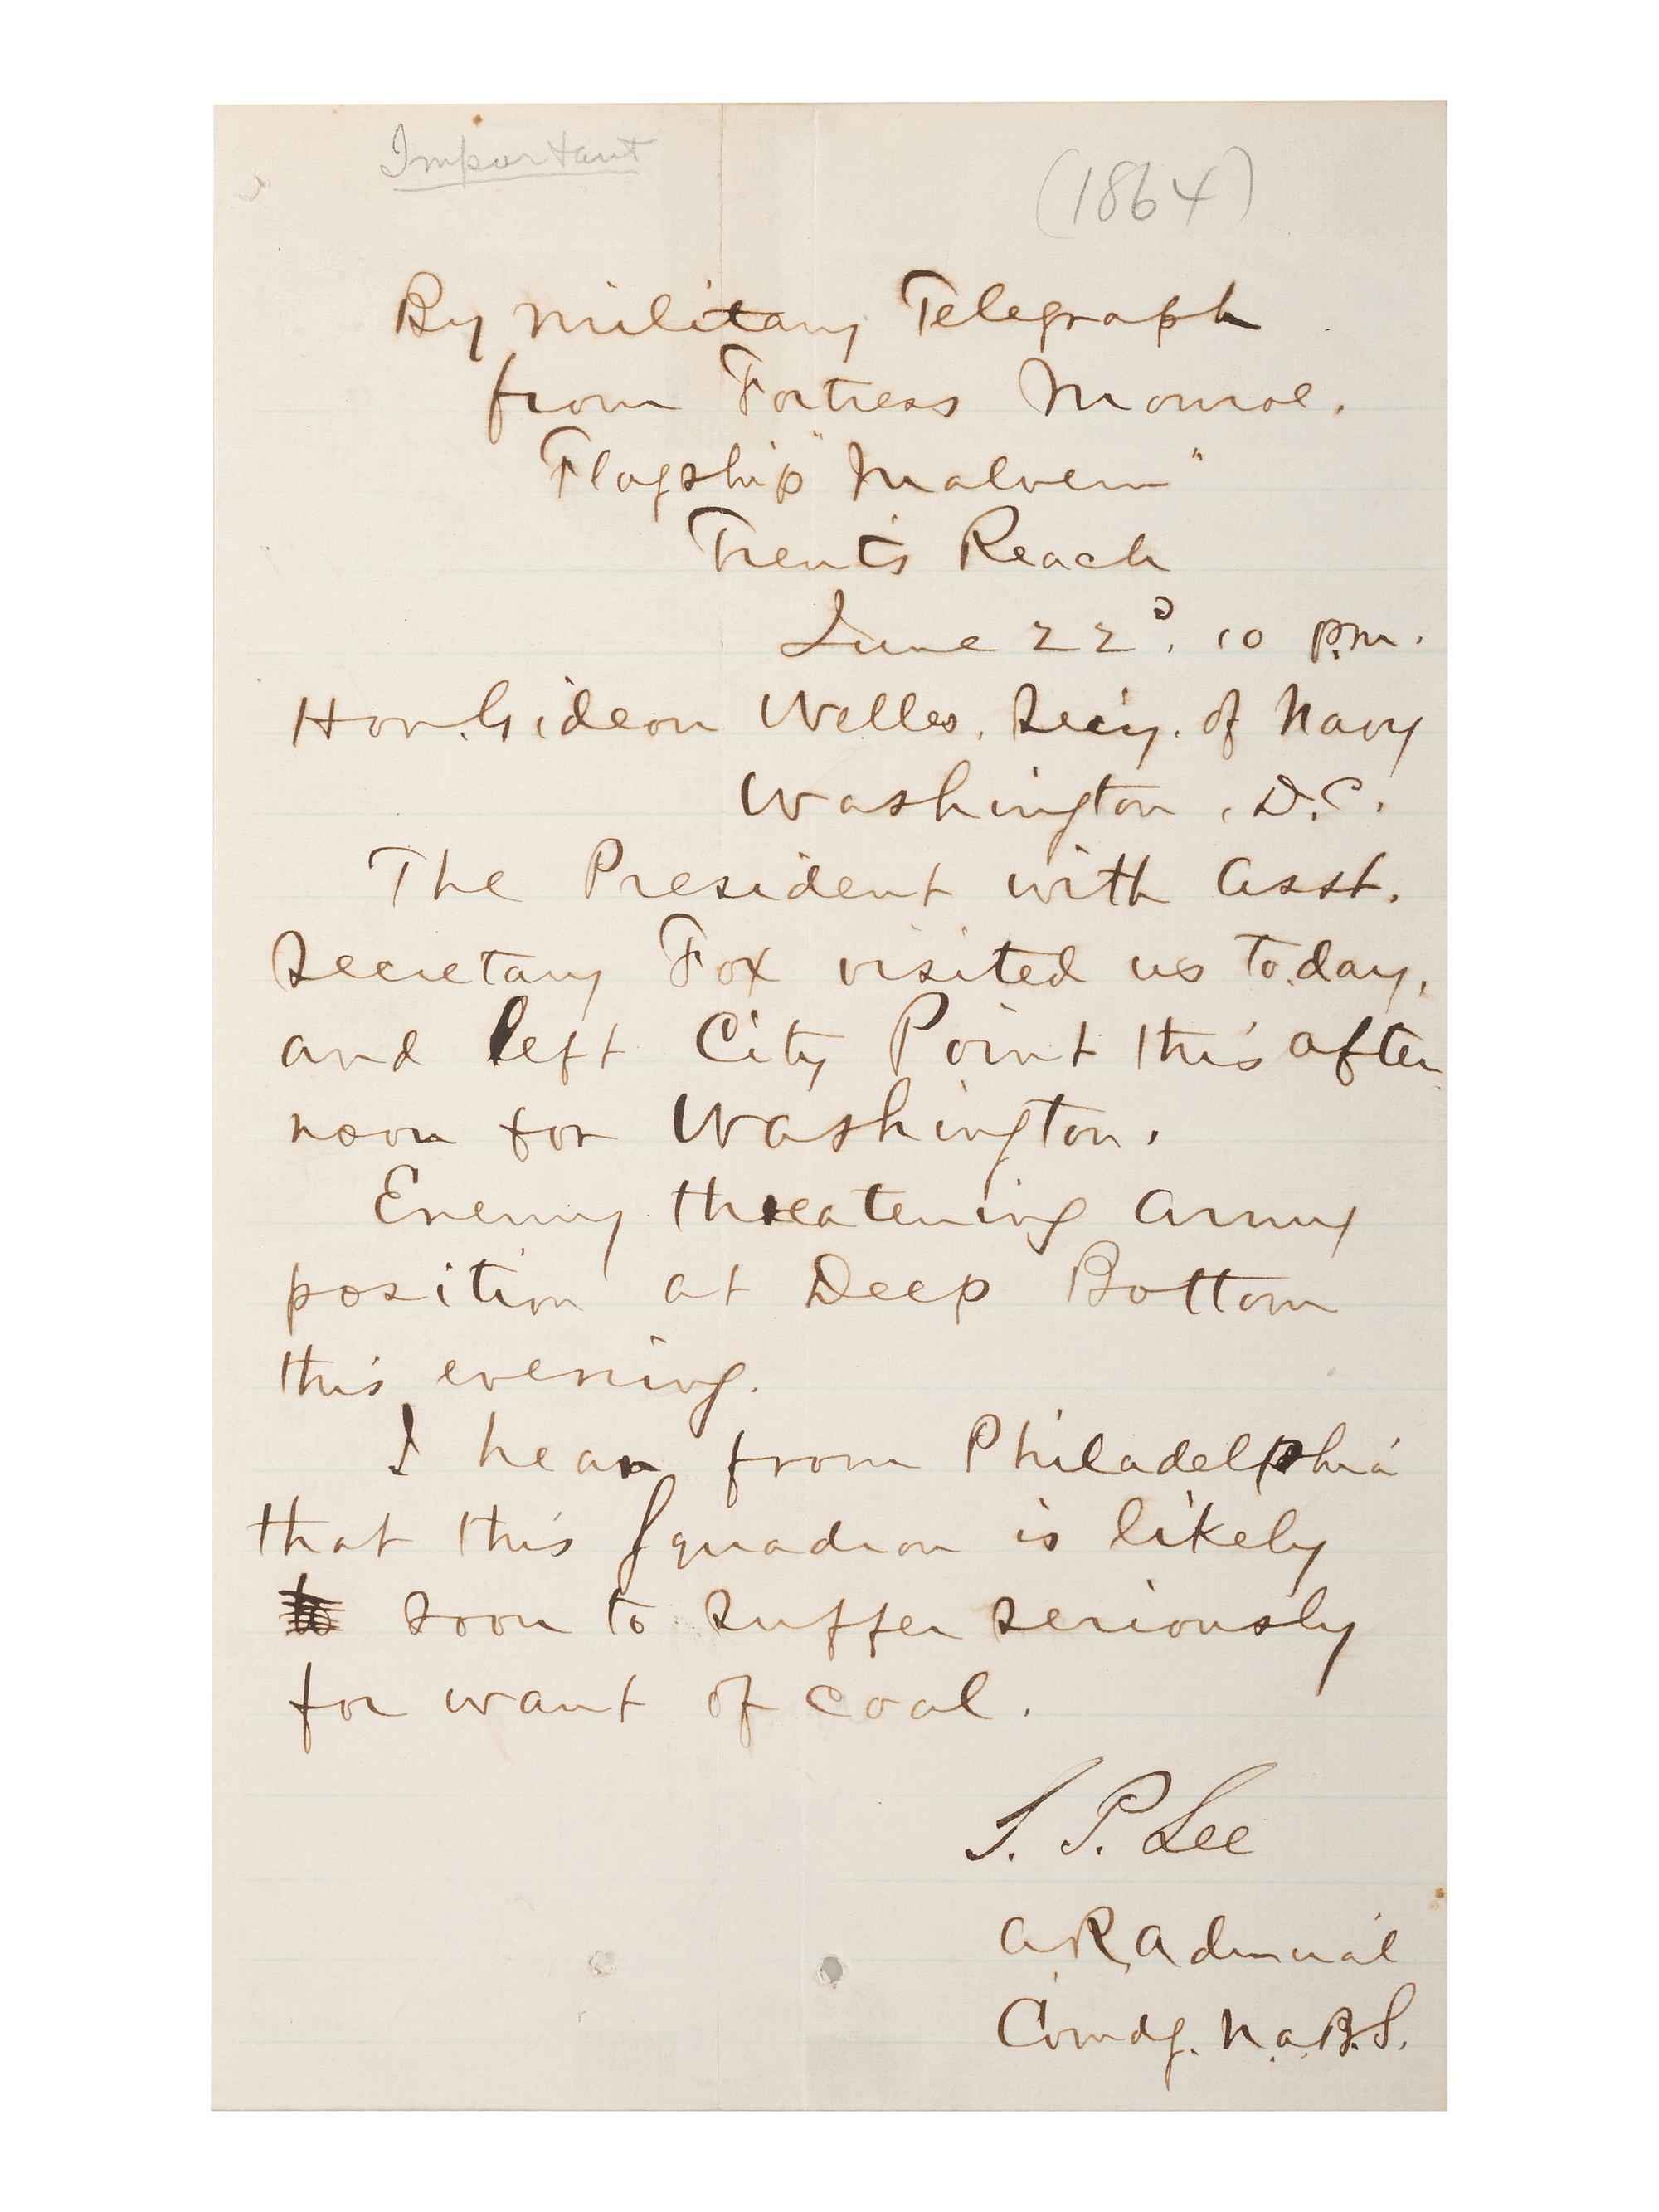 Important
(1864)
By Military Telegraph
from Fortress Monroe.
Flagship "Malvern"
Trent's Reach
June 22d, 10 p.m.
Hon. Gideon Welles, Sec'y. of Navy
Washington, D.C.
The President with Asst.
Secretary Fox visited us to.day,
and left City Point this after
noon for Washington.
Enemy threatening army
position at Deep Bottom
this evening.
I hear from Philadelphia
that this Squadron is likely
to soon to suffer seriously
for want of coal.
S. P. Lee
A.R. Admiral
Comdg. N.A.B.S.